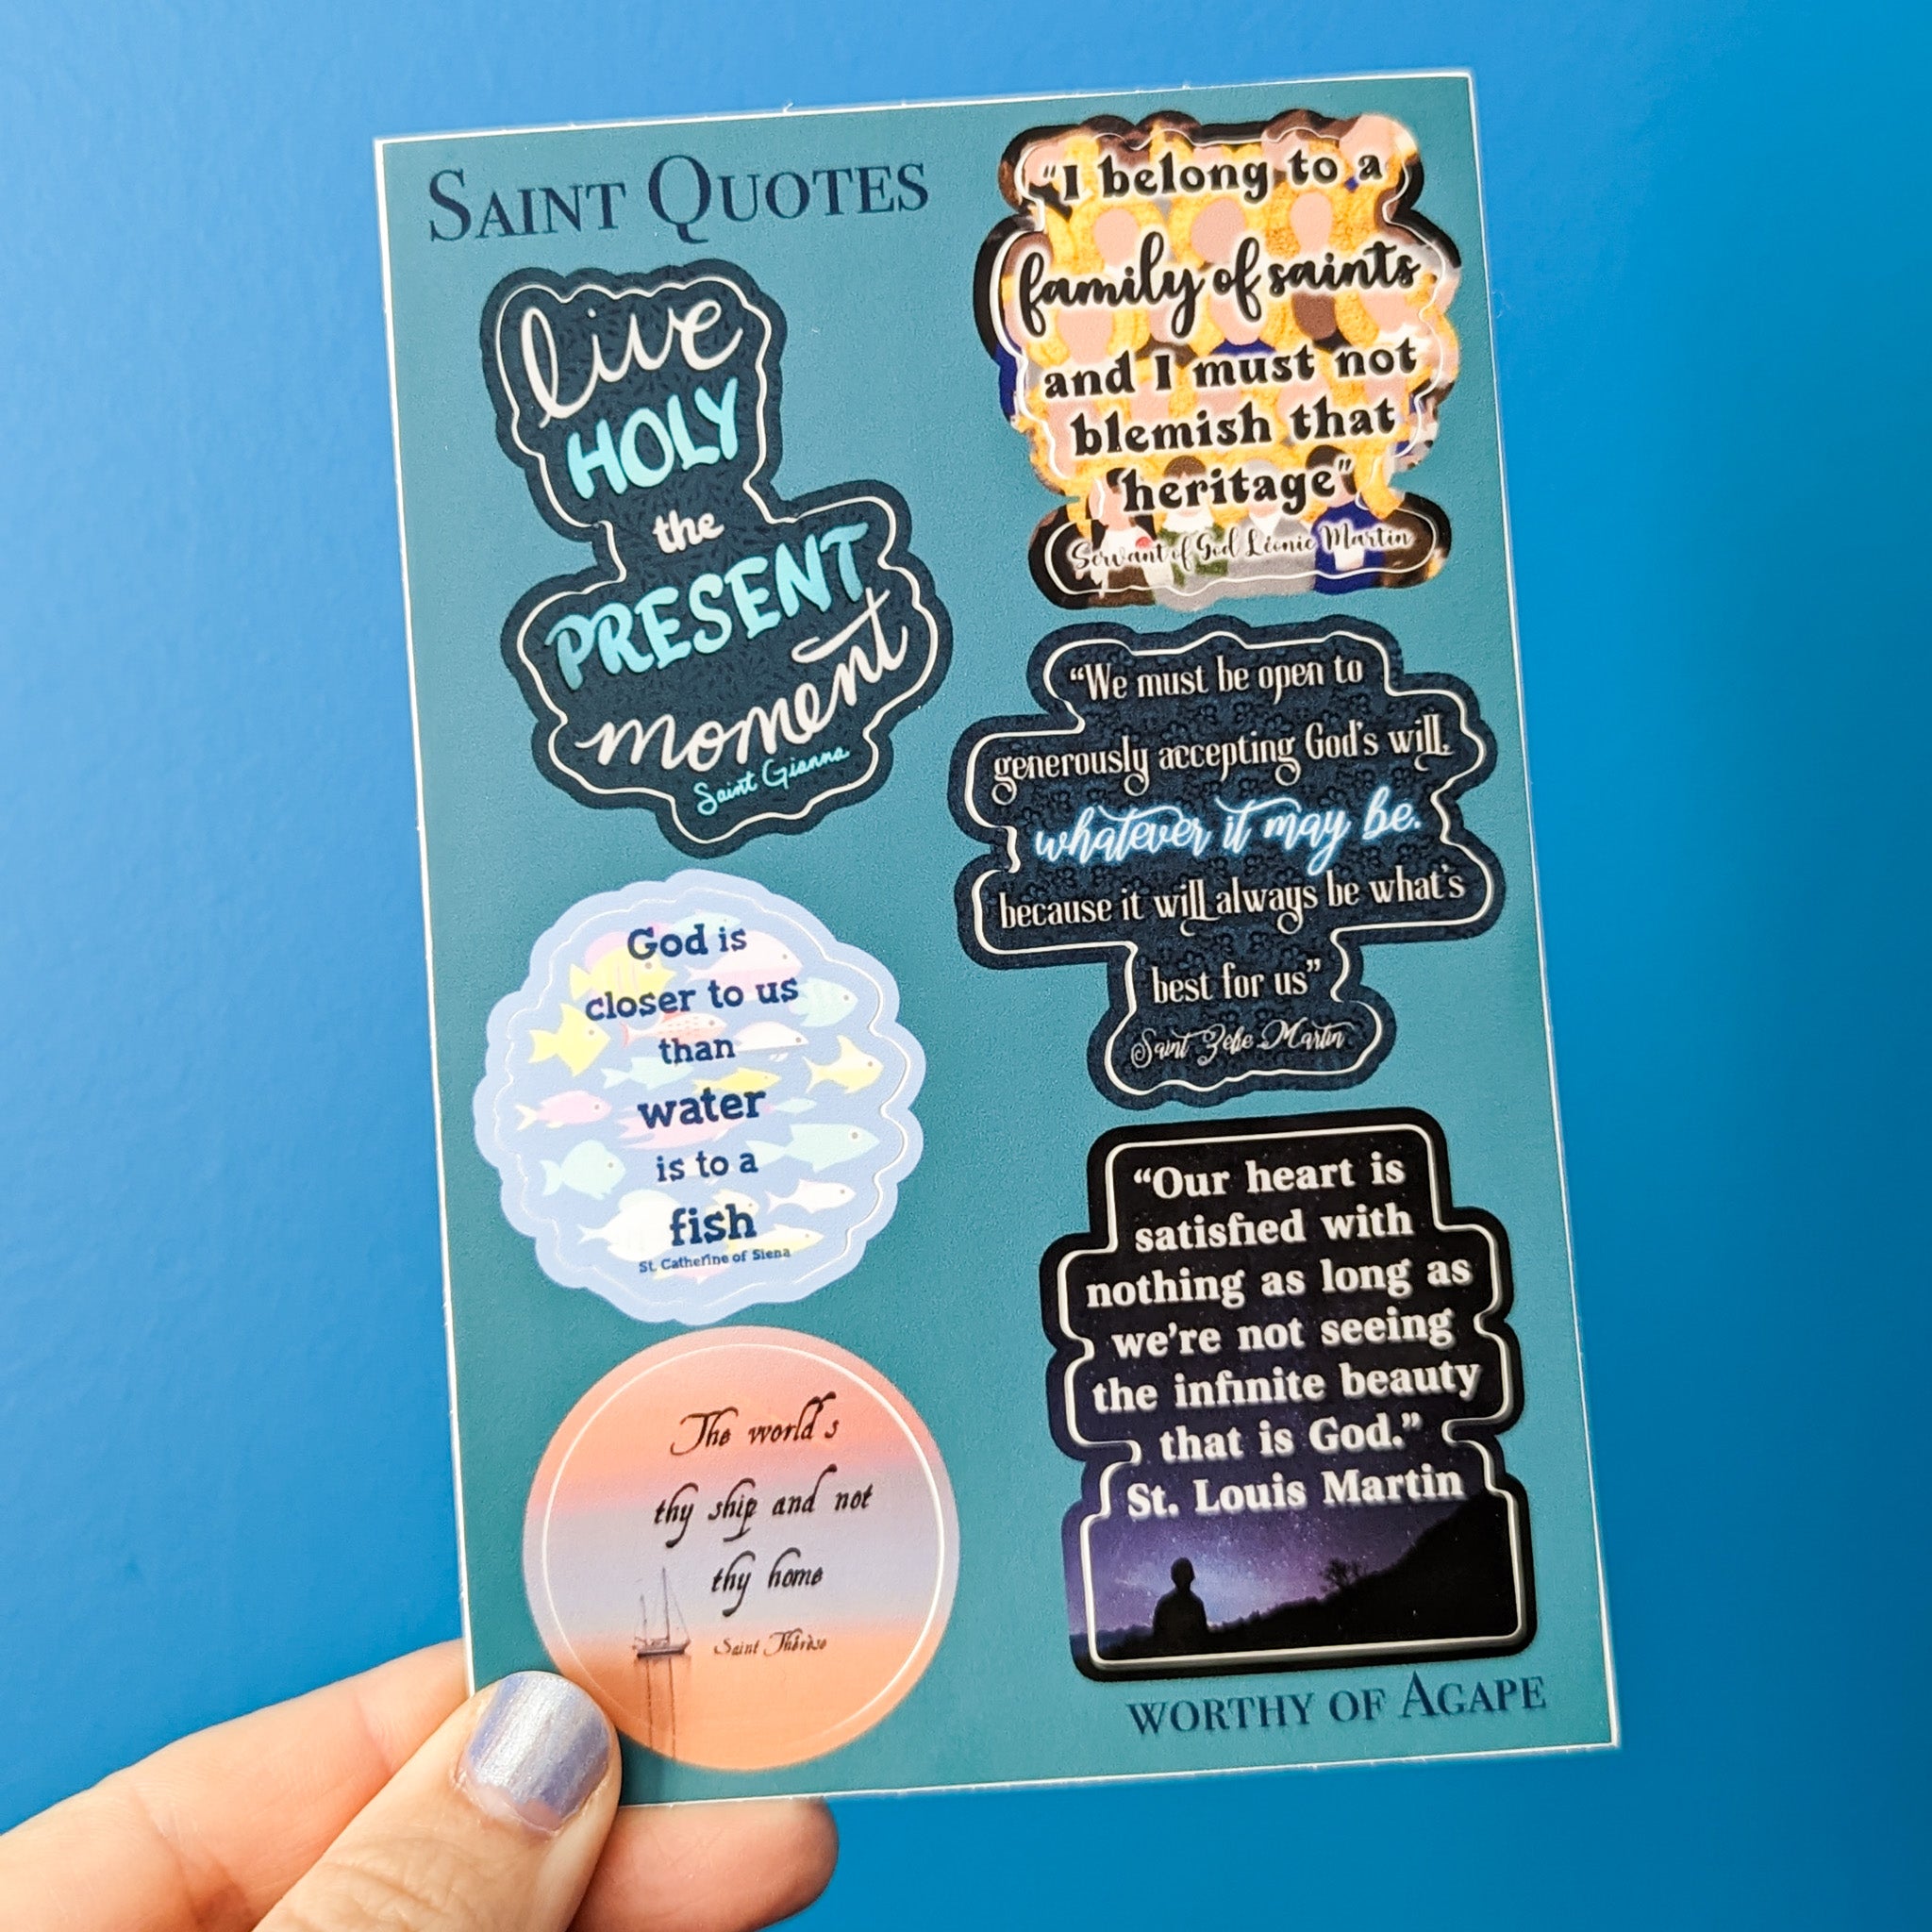 SAINT QUOTES
live
HOLY
the
PRESENT
moment
Saint Gianna
God is
closer to us
than
water
is to a
fish
St. Catherine of Siena
The world's
thy ship and not
thy home
Saint Thérèse
“I belong to a
family of saints
and I must not
blemish that
heritage”
Servant of God Léonie Martin
“We must be open to
generously accepting God's will,
whatever it may be.
because it will always be what's
best for us”
Saint Zélie Martin
“Our heart is
satisfied with
nothing as long as
we're not seeing
the infinite beauty
that is God.”
St. Louis Martin
WORTHY OF AGAPE